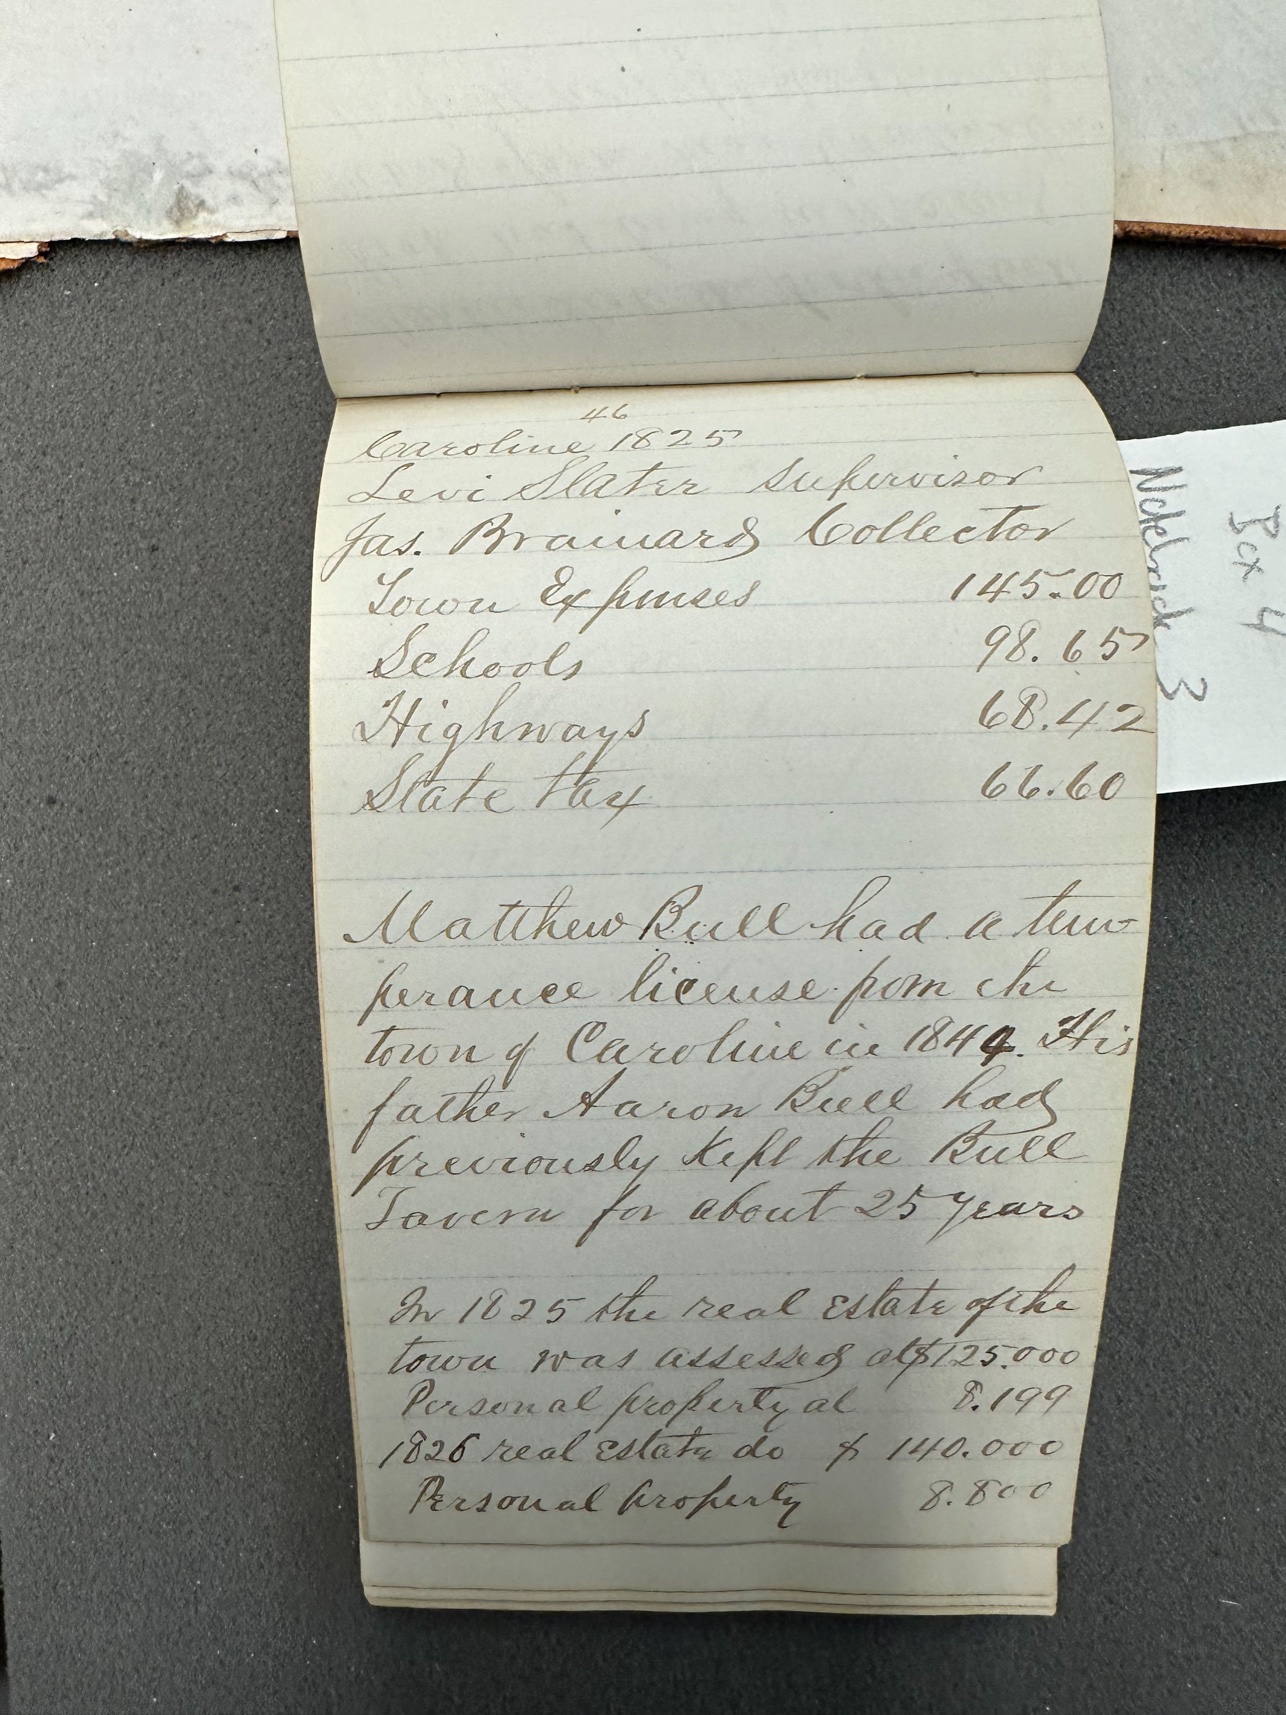 46
Caroline 1825
Levi Slater Supervisor
Jas. Brainard Collector
Town Expenses 145.00
Schools 98.65
Highways 68.42
State tax 66.60
Matthew Bull had a tem-
perance license from the
town of Caroline in 1844. His
father Aaron Bull had
previously kept the Bull
Tavern for about 25 years
In 1825 the real estate of the
town was assessed at $125.000
Personal property at 8.199
1826 real estate do $ 140.000
Personal property 8.800
Box 4
3